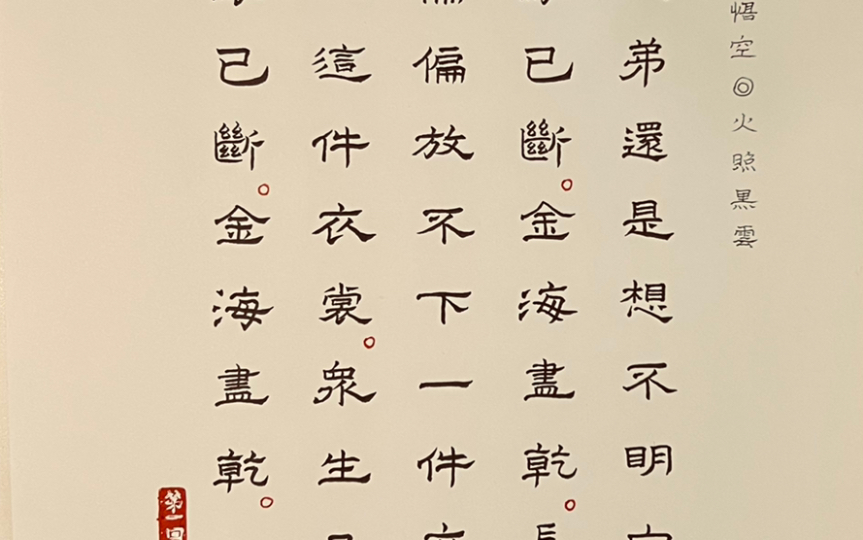 悟空◎火照黑雲
弟還是想不明
已斷。金海盡乾。長
偏放不下一件
這件衣裳。眾生
已斷。金海盡乾。
第一回